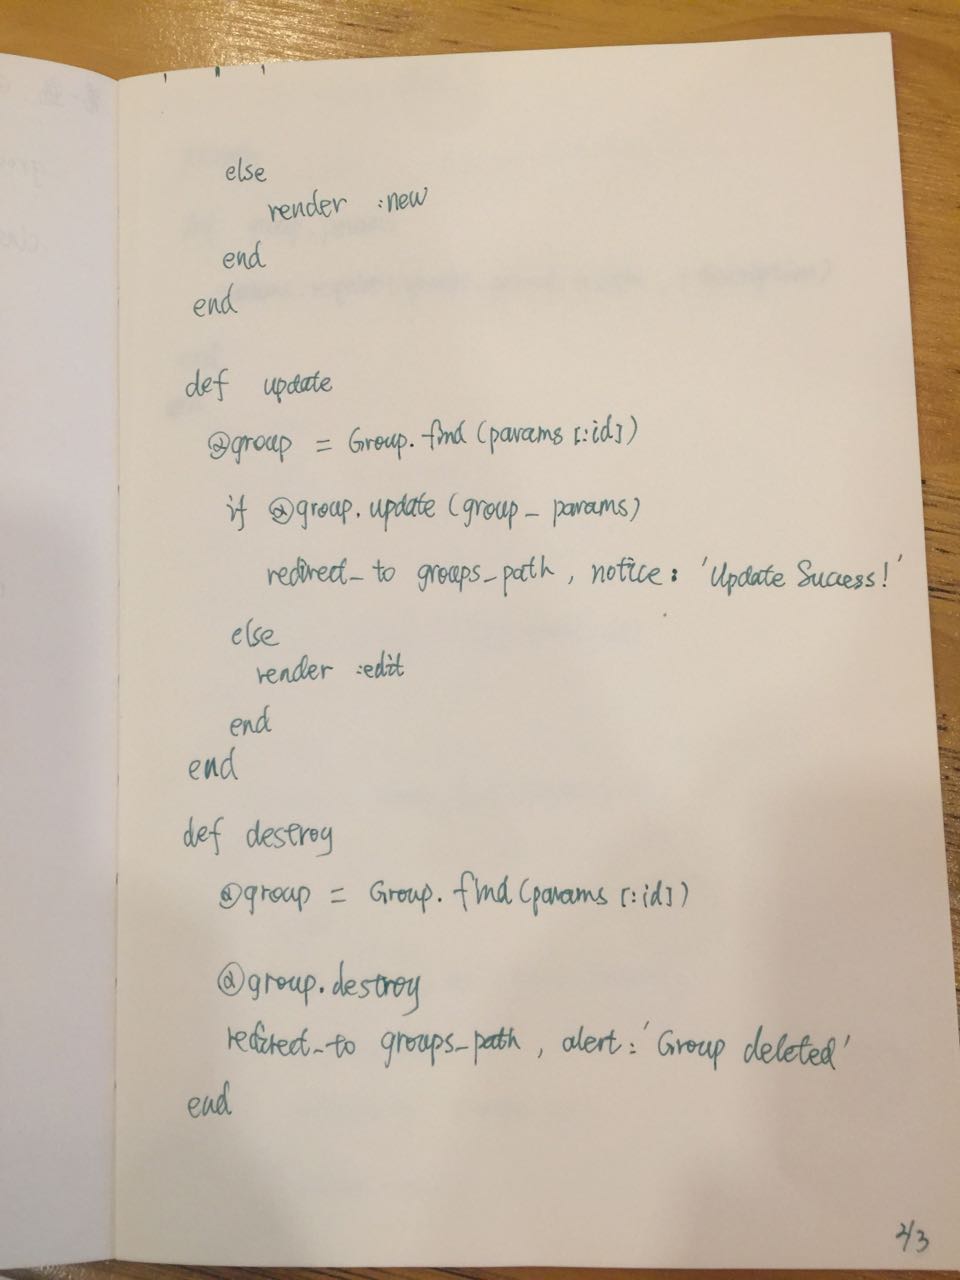 else
render :new
end
end
def update
@group = Group.find (params [:id])
if @group.update (group_params)
redirect_to groups_path, notice: 'Update Success!'
else
render :edit
end
end
def destroy
@group = Group.find (params [:id])
@group.destroy
redirect_to groups_path, alert: 'Group deleted'
end
2/3